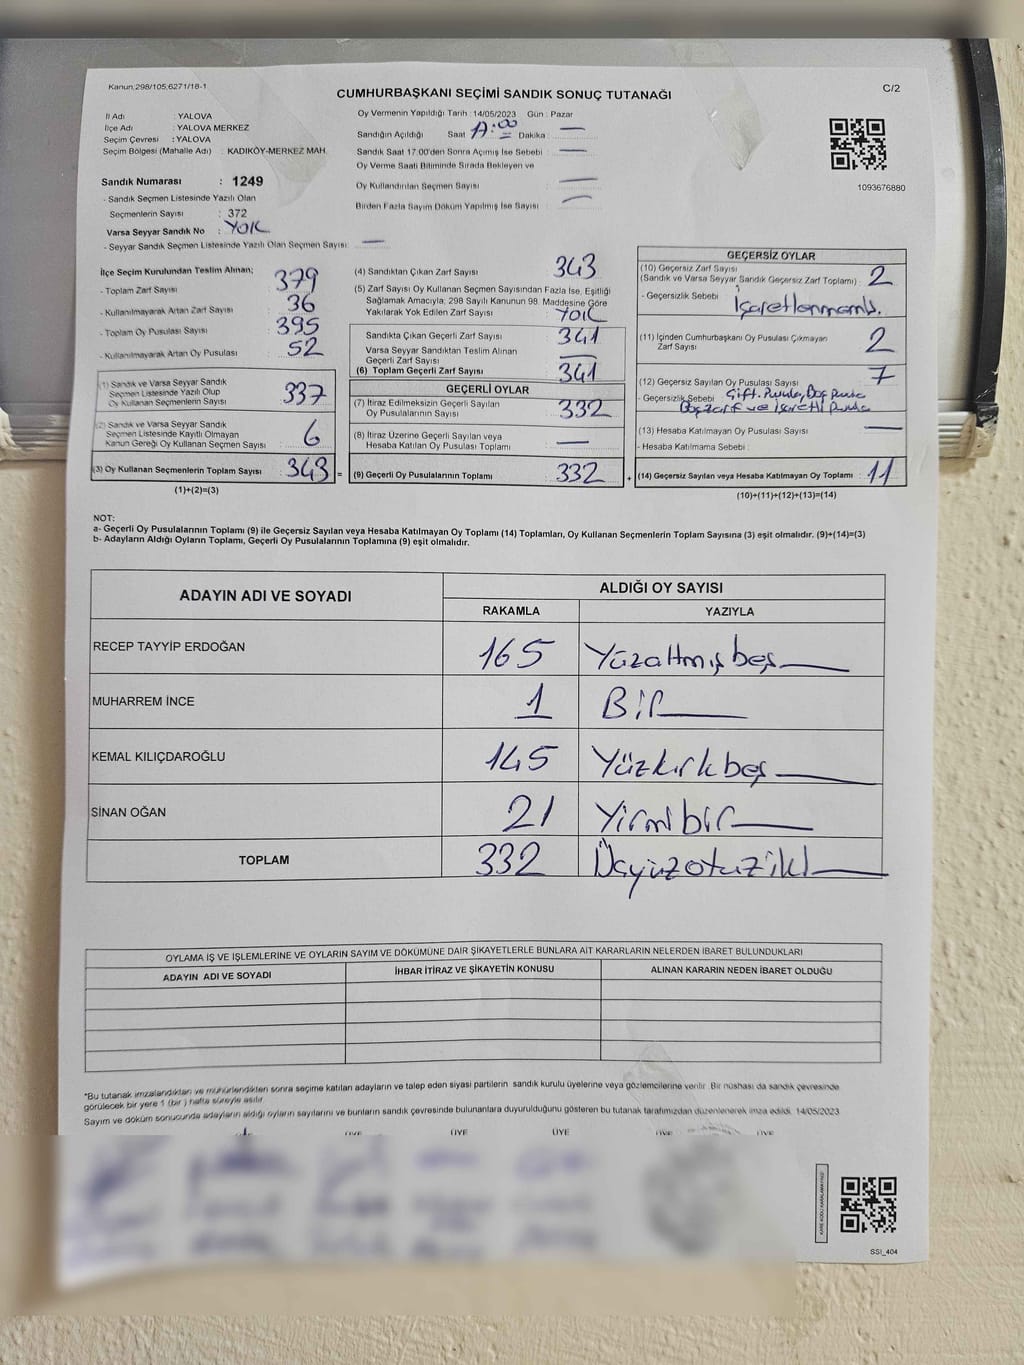 Kanun:298/105,6271/18-1
CUMHURBAŞKANI SEÇİMİ SANDIK SONUÇ TUTANAĞI
C/2
İl Adı : YALOVA
İlçe Adı : YALOVA MERKEZ
Seçim Çevresi : YALOVA
Seçim Bölgesi (Mahalle Adı) : KADIKÖY-MERKEZ MAH.
Sandık Numarası : 1249
- Sandık Seçmen Listesinde Yazılı Olan
Seçmenlerin Sayısı : 372
Varsa Seyyar Sandık No : YOK
- Seyyar Sandık Seçmen Listesinde Yazılı Olan Seçmen Sayısı: —
Oy Vermenin Yapıldığı Tarih : 14/05/2023 Gün : Pazar
Sandığın Açıldığı Saat :00 Dakika : —
Sandık Saat 17:00'den Sonra Açımış İse Sebebi : —
Oy Verme Saati Bitiminde Sırada Bekleyen ve
Oy Kullandırılan Seçmen Sayısı : —
Birden Fazla Sayım Döküm Yapılmış İse Sayısı : —
1093676880
İlçe Seçim Kurulundan Teslim Alınan;
- Toplam Zarf Sayısı : 379
- Kullanılmayarak Artan Zarf Sayısı : 36
- Toplam Oy Pusulası Sayısı : 395
- Kullanılmayarak Artan Oy Pusulası : 52
(1) Sandık ve Varsa Seyyar Sandık
Seçmen Listesinde Yazılı Olup
Oy Kullanan Seçmenlerin Sayısı : 337
(2) Sandık ve Varsa Seyyar Sandık
Seçmen Listesinde Kayıtlı Olmayan
Kanun Gereği Oy Kullanan Seçmen Sayısı : 6
(3) Oy Kullanan Seçmenlerin Toplam Sayısı : 343 =
(1)+(2)=(3)
(4) Sandıktan Çıkan Zarf Sayısı : 343
(5) Zarf Sayısı Oy Kullanan Seçmen Sayısından Fazla İse, Eşitliği
Sağlamak Amacıyla; 298 Sayılı Kanunun 98. Maddesine Göre
Yakılarak Yok Edilen Zarf Sayısı : YOK
Sandıkta Çıkan Geçerli Zarf Sayısı : 341
Varsa Seyyar Sandıktan Teslim Alınan
Geçerli Zarf Sayısı : —
(6) Toplam Geçerli Zarf Sayısı : 341
GEÇERLİ OYLAR
(7) İtiraz Edilmeksizin Geçerli Sayılan
Oy Pusulalarının Sayısı : 332
(8) İtiraz Üzerine Geçerli Sayılan veya
Hesaba Katılan Oy Pusulaları Toplamı : —
(9) Geçerli Oy Pusulalarının Toplamı : 332 +
GEÇERSİZ OYLAR
(10) Geçersiz Zarf Sayısı
(Sandık ve Varsa Seyyar Sandık Geçersiz Zarf Toplamı) : 2
- Geçersizlik Sebebi : İşaretlenmemiş.
(11) İçinden Cumhurbaşkanı Oy Pusulası Çıkmayan
Zarf Sayısı : 2
(12) Geçersiz Sayılan Oy Pusulası Sayısı : 7
- Geçersizlik Sebebi : Çift. Pusula, Boş Pusula
Boş zarf ve İşaretli Pusula
(13) Hesaba Katılmayan Oy Pusulası Sayısı : —
- Hesaba Katılmama Sebebi :
(14) Geçersiz Sayılan veya Hesaba Katılmayan Oy Toplamı : 11
(10)+(11)+(12)+(13)=(14)
NOT:
a- Geçerli Oy Pusulalarının Toplamı (9) ile Geçersiz Sayılan veya Hesaba Katılmayan Oy Toplamı (14) Toplamları, Oy Kullanan Seçmenlerin Toplam Sayısına (3) eşit olmalıdır. (9)+(14)=(3)
b- Adayların Aldığı Oyların Toplamı, Geçerli Oy Pusulalarının Toplamına (9) eşit olmalıdır.
ADAYIN ADI VE SOYADI ALDIĞI OY SAYISI
RAKAMLA YAZIYLA
RECEP TAYYİP ERDOĞAN 165 Yüzaltmışbeş
MUHARREM İNCE 1 Bir
KEMAL KILIÇDAROĞLU 145 Yüzkırkbeş
SİNAN OĞAN 21 Yirmibir
TOPLAM 332 Üçyüzotuziki
OYLAMA İŞ VE İŞLEMLERİNE VE OYLARIN SAYIM VE DÖKÜMÜNE DAİR ŞİKAYETLERLE BUNLARA AİT KARARLARIN NELERDEN İBARET BULUNDUKLARI
ADAYIN ADI VE SOYADI İHBAR İTİRAZ VE ŞİKAYETİN KONUSU ALINAN KARARIN NEDEN İBARET OLDUĞU
*Bu tutanak imzalandıktan ve mühürlendikten sonra seçime katılan adayların ve talep eden siyasi partilerin sandık kurulu üyelerine veya gözlemcilerine verilir. Bir nüshası da sandık çevresinde
görülecek bir yere 1 (bir) hafta süreyle asılır.
Sayım ve döküm sonucunda adayların aldığı oyların sayılarını ve bunların sandık çevresinde bulunanlara duyurulduğunu gösteren bu tutanak tarafımızdan düzenlenerek imza edildi. 14/05/2023
ÜYE ÜYE ÜYE ÜYE ÜYE
SSI_404